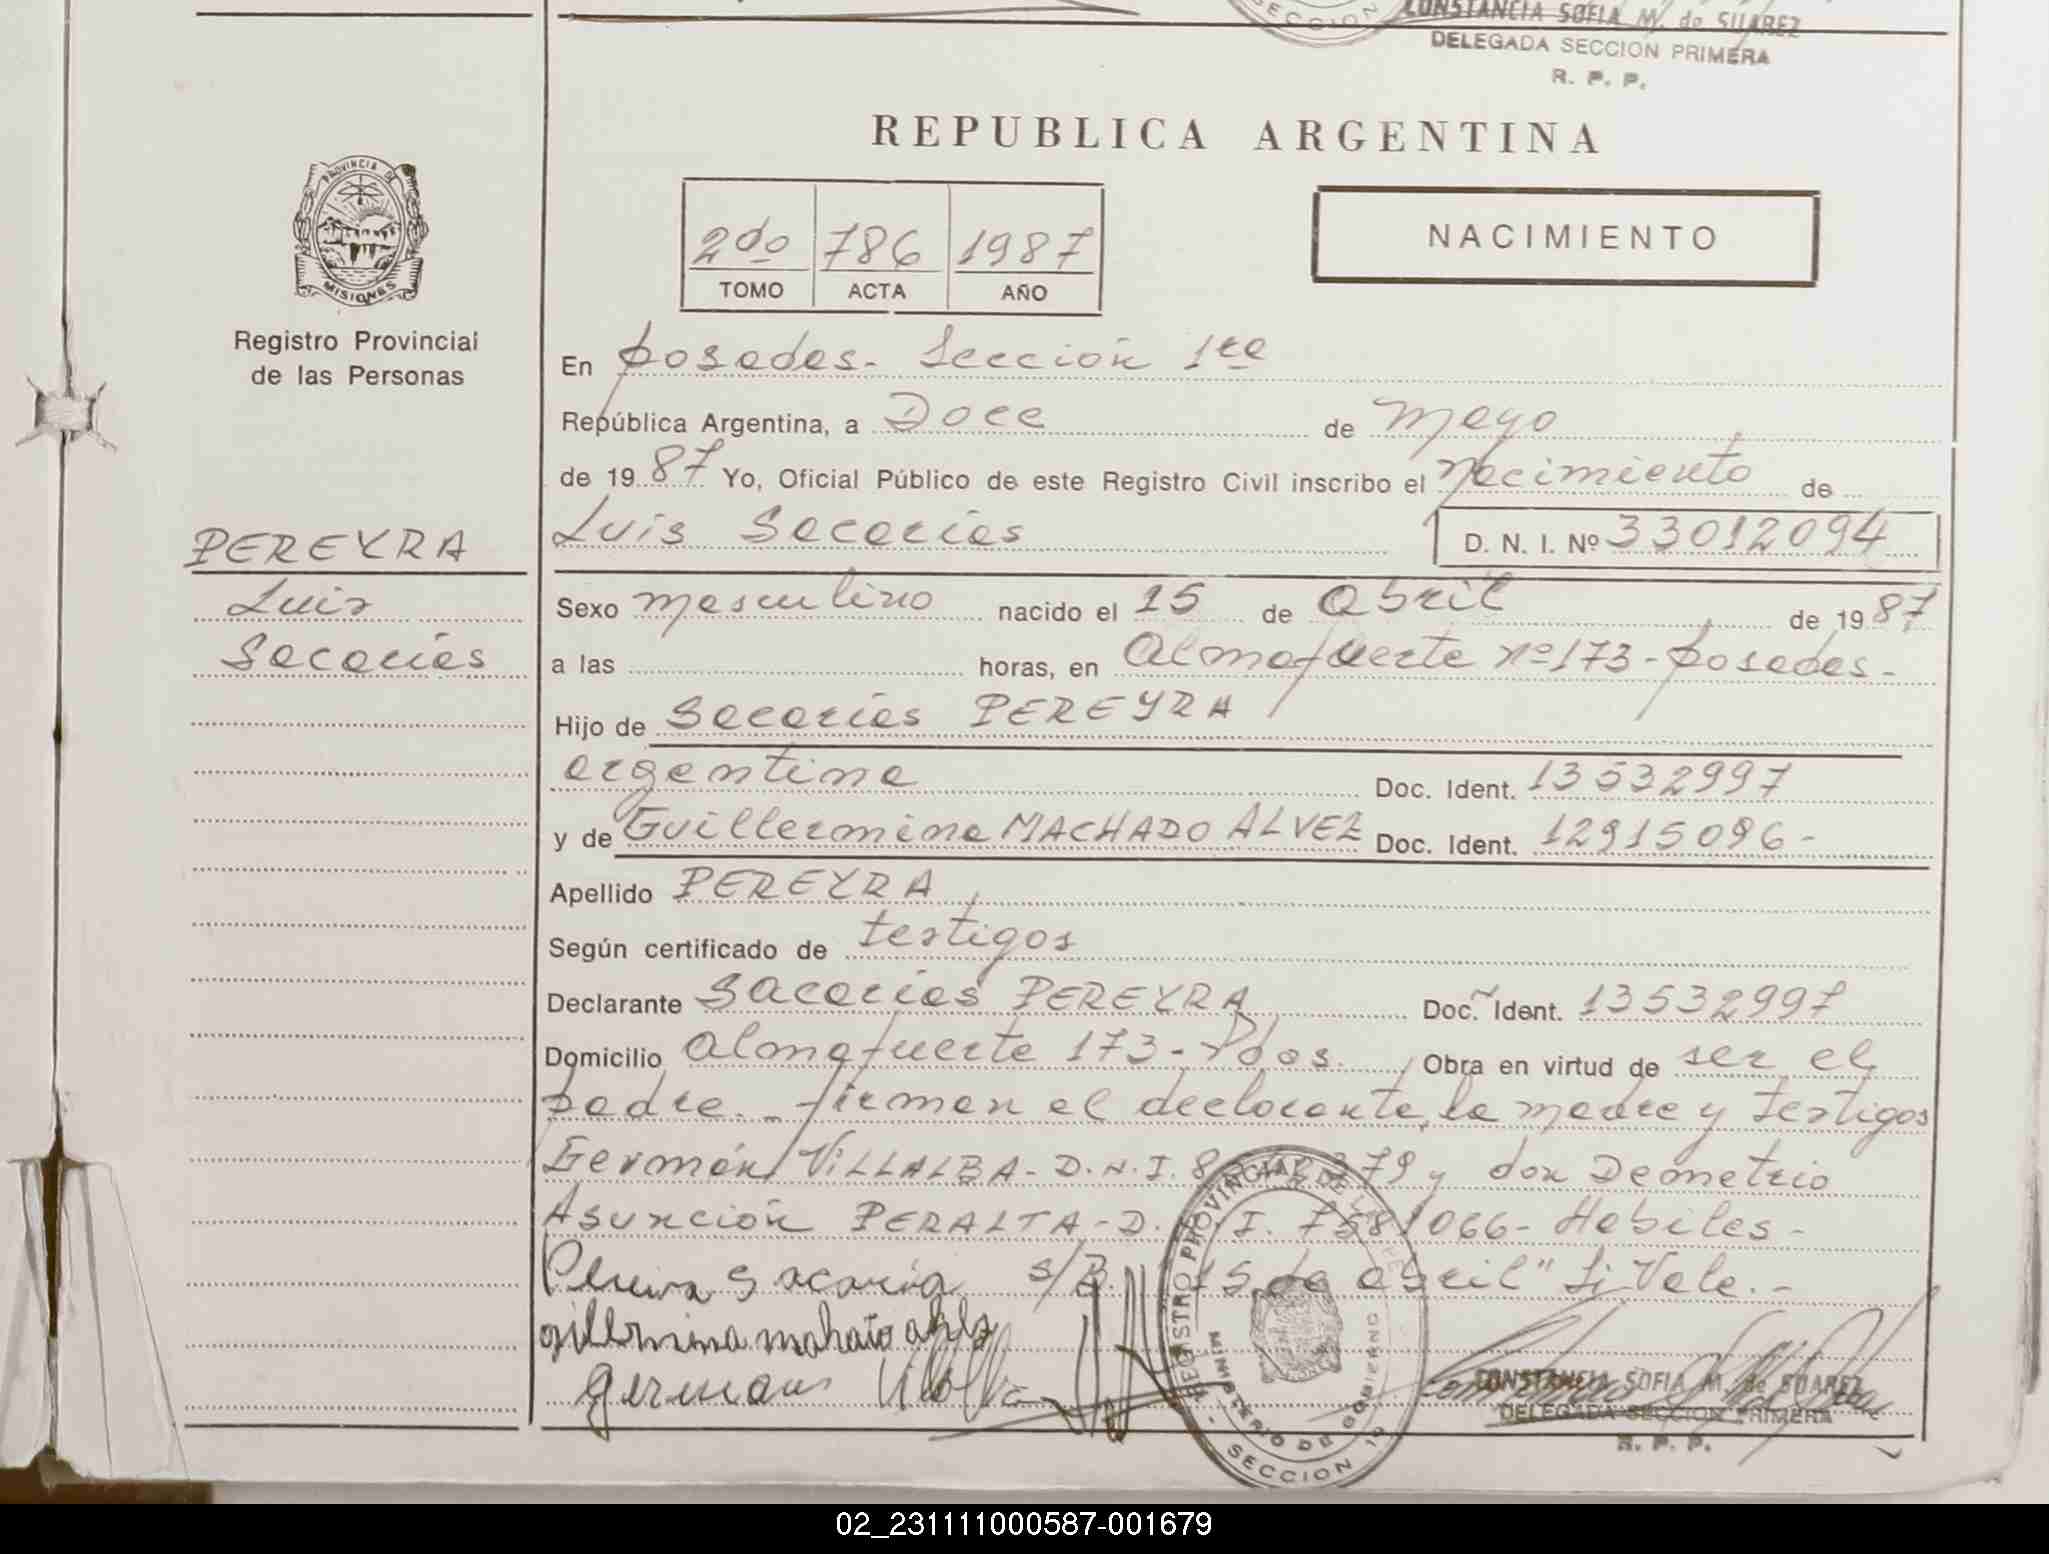 CONSTANCIA SOFIA M. de SUAREZ
SECCION
DELEGADA SECCION PRIMERA
R. P. P.
REPUBLICA ARGENTINA
PROVINCIA DE
MISIONES
2do 786 1987
TOMO ACTA AÑO
NACIMIENTO
Registro Provincial
de las Personas
En Posadas - Sección 1ra
República Argentina, a Doce de mayo
de 1987 Yo, Oficial Público de este Registro Civil inscribo el nacimiento de
Luis Sacarías D. N. I. Nº 33012094
PEREYRA
Luis
Sacarías
Sexo masculino nacido el 15 de abril de 1987
a las horas, en Almafuerte nº 173 - Posadas -
Hijo de Sacarías PEREYRA
argentina Doc. Ident. 13532997
y de Guillermina MACHADO ALVEZ Doc. Ident. 12915096 -
Apellido PEREYRA
Según certificado de testigos
Declarante Sacarias PEREYRA Doc. Ident. 13532997
Domicilio Almafuerte 173 - Pdas. Obra en virtud de ser el
padre. - firman el declarante, la madre y testigos
Germán VILLALBA - D.N.I. y don Demetrio
Asunción PERALTA - D. I. 7581066 - Habiles -
Pereira Sacaria s/B. "15 de abril" Si Vale. -
gillermina mahato
german
REGISTRO PROVINCIAL DE
MINISTERIO DE GOBIERNO
SECCION 1a
CONSTANCIA SOFIA M. de SUAREZ
DELEGADA SECCION PRIMERA
R. P. P.
02_231111000587-001679